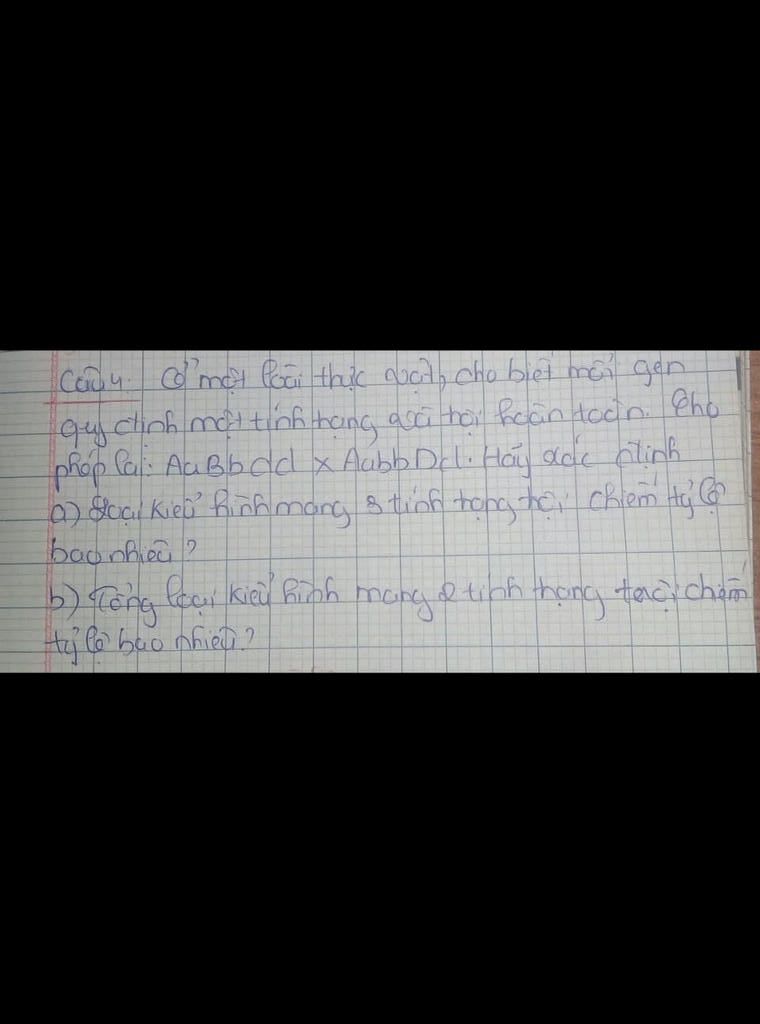 Câu 4. Ở một loài thực vật, cho biết mỗi gen
quy định một tính trạng và trội hoàn toàn. Cho
phép lai: AaBbdd x AabbDd. Hãy xác định
a) Loại kiểu hình mang 3 tính trạng trội chiếm tỷ lệ
bao nhiêu?
b) Tổng loại kiểu hình mang 2 tính trạng trội chiếm
tỷ lệ bao nhiêu?